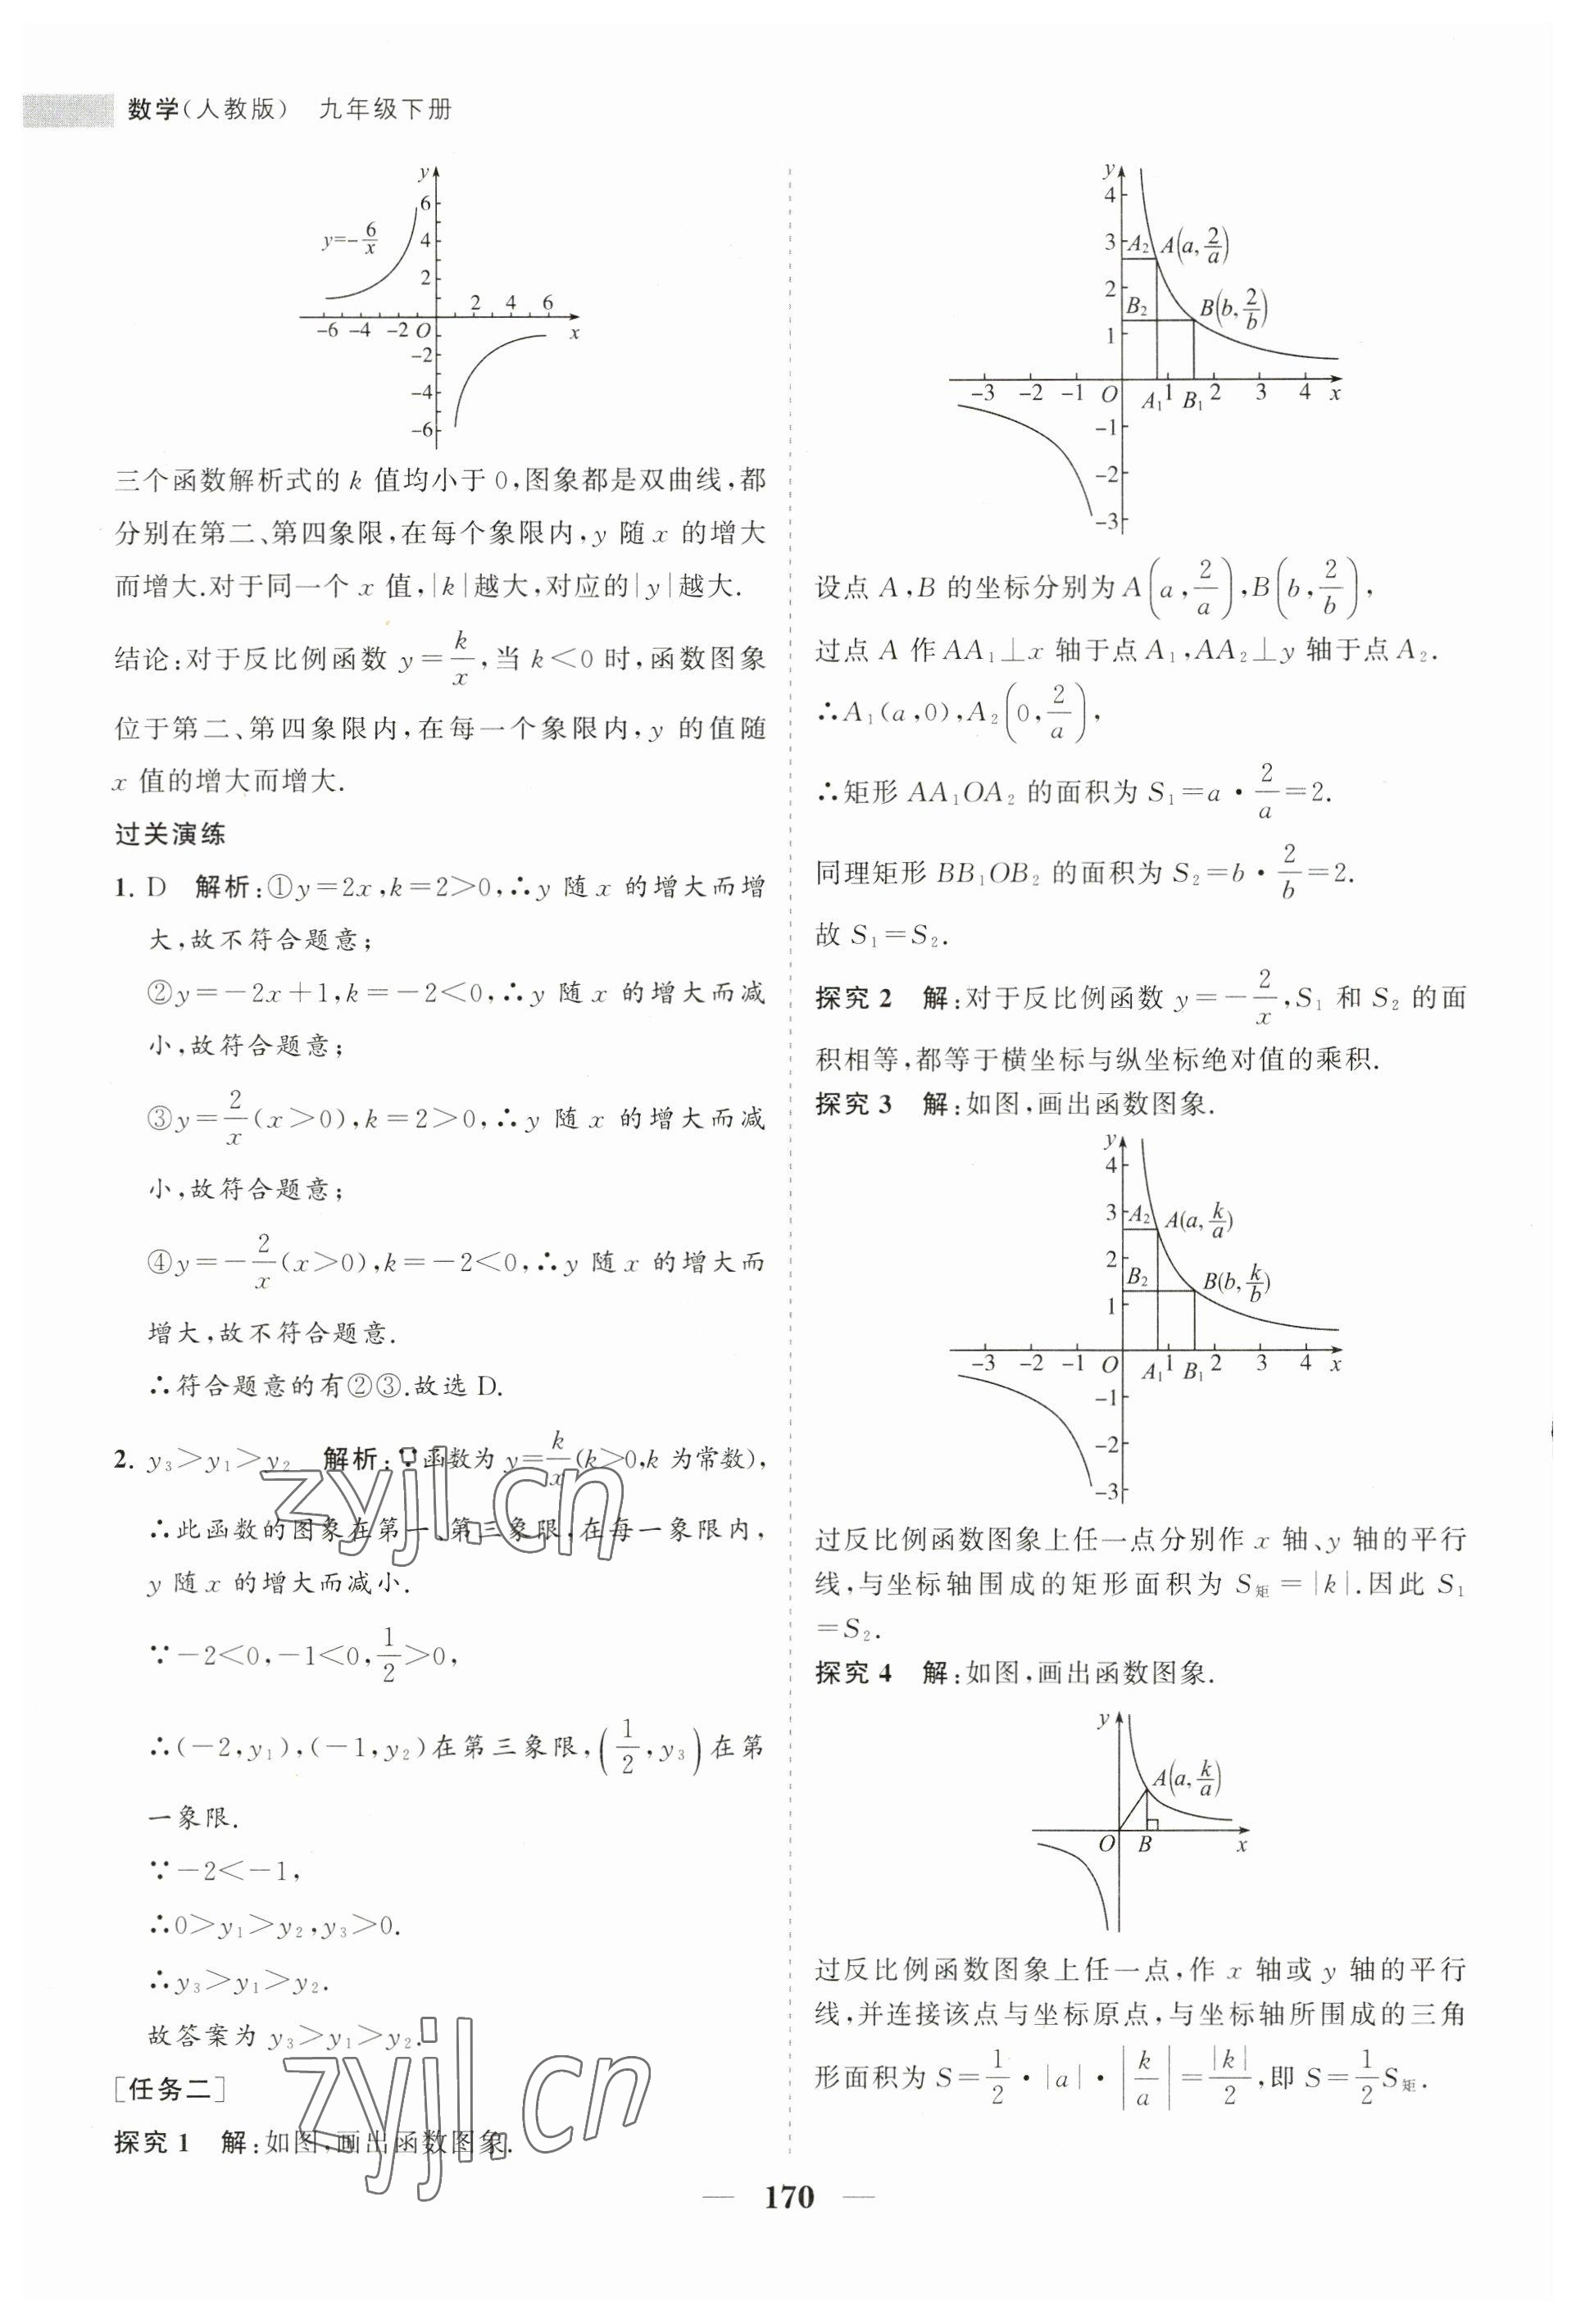 数学(人教版) 九年级下册
y
6
y=-6/x
4
2
2 4 6
-6 -4 -2 O x
-2
-4
-6
三个函数解析式的 k 值均小于 0,图象都是双曲线,都
分别在第二、第四象限,在每个象限内,y 随 x 的增大
而增大.对于同一个 x 值,|k|越大,对应的|y|越大.
结论:对于反比例函数 y=k/x,当 k<0 时,函数图象
位于第二、第四象限内,在每一个象限内,y 的值随
x 值的增大而增大.
过关演练
1. D 解析:①y=2x,k=2>0,∴y 随 x 的增大而增
大,故不符合题意;
②y=-2x+1,k=-2<0,∴y 随 x 的增大而减
小,故符合题意;
③y=2/x(x>0),k=2>0,∴y 随 x 的增大而减
小,故符合题意;
④y=-2/x(x>0),k=-2<0,∴y 随 x 的增大而
增大,故不符合题意.
∴符合题意的有②③.故选 D.
2. y₃>y₁>y₂ 解析:∵函数为 y=k/x(k>0,k 为常数),
∴此函数的图象在第一、第三象限,在每一象限内,
y 随 x 的增大而减小.
∵-2<0,-1<0,1/2>0,
∴(-2,y₁),(-1,y₂)在第三象限,(1/2,y₃)在第
一象限.
∵-2<-1,
∴0>y₁>y₂,y₃>0.
∴y₃>y₁>y₂.
故答案为 y₃>y₁>y₂.
[任务二]
探究 1 解:如图,画出函数图象.
y
4
3 A₂ A(a,2/a)
2
B₂ B(b,2/b)
1
-3 -2 -1 O A₁ 1 B₁ 2 3 4 x
-1
-2
-3
设点 A,B 的坐标分别为 A(a,2/a),B(b,2/b),
过点 A 作 AA₁⊥x 轴于点 A₁,AA₂⊥y 轴于点 A₂.
∴A₁(a,0),A₂(0,2/a),
∴矩形 AA₁OA₂ 的面积为 S₁=a·2/a=2.
同理矩形 BB₁OB₂ 的面积为 S₂=b·2/b=2.
故 S₁=S₂.
探究 2 解:对于反比例函数 y=-2/x,S₁ 和 S₂ 的面
积相等,都等于横坐标与纵坐标绝对值的乘积.
探究 3 解:如图,画出函数图象.
y
4
3 A₂ A(a,k/a)
2
B₂ B(b,k/b)
1
-3 -2 -1 O A₁ 1 B₁ 2 3 4 x
-1
-2
-3
过反比例函数图象上任一点分别作 x 轴、y 轴的平行
线,与坐标轴围成的矩形面积为 S矩=|k|.因此 S₁
=S₂.
探究 4 解:如图,画出函数图象.
y
A(a,k/a)
O B x
过反比例函数图象上任一点,作 x 轴或 y 轴的平行
线,并连接该点与坐标原点,与坐标轴所围成的三角
形面积为 S=1/2·|a|·|k/a|=|k|/2,即 S=1/2S矩.
zyjl.cn
zyjl.cn
— 170 —